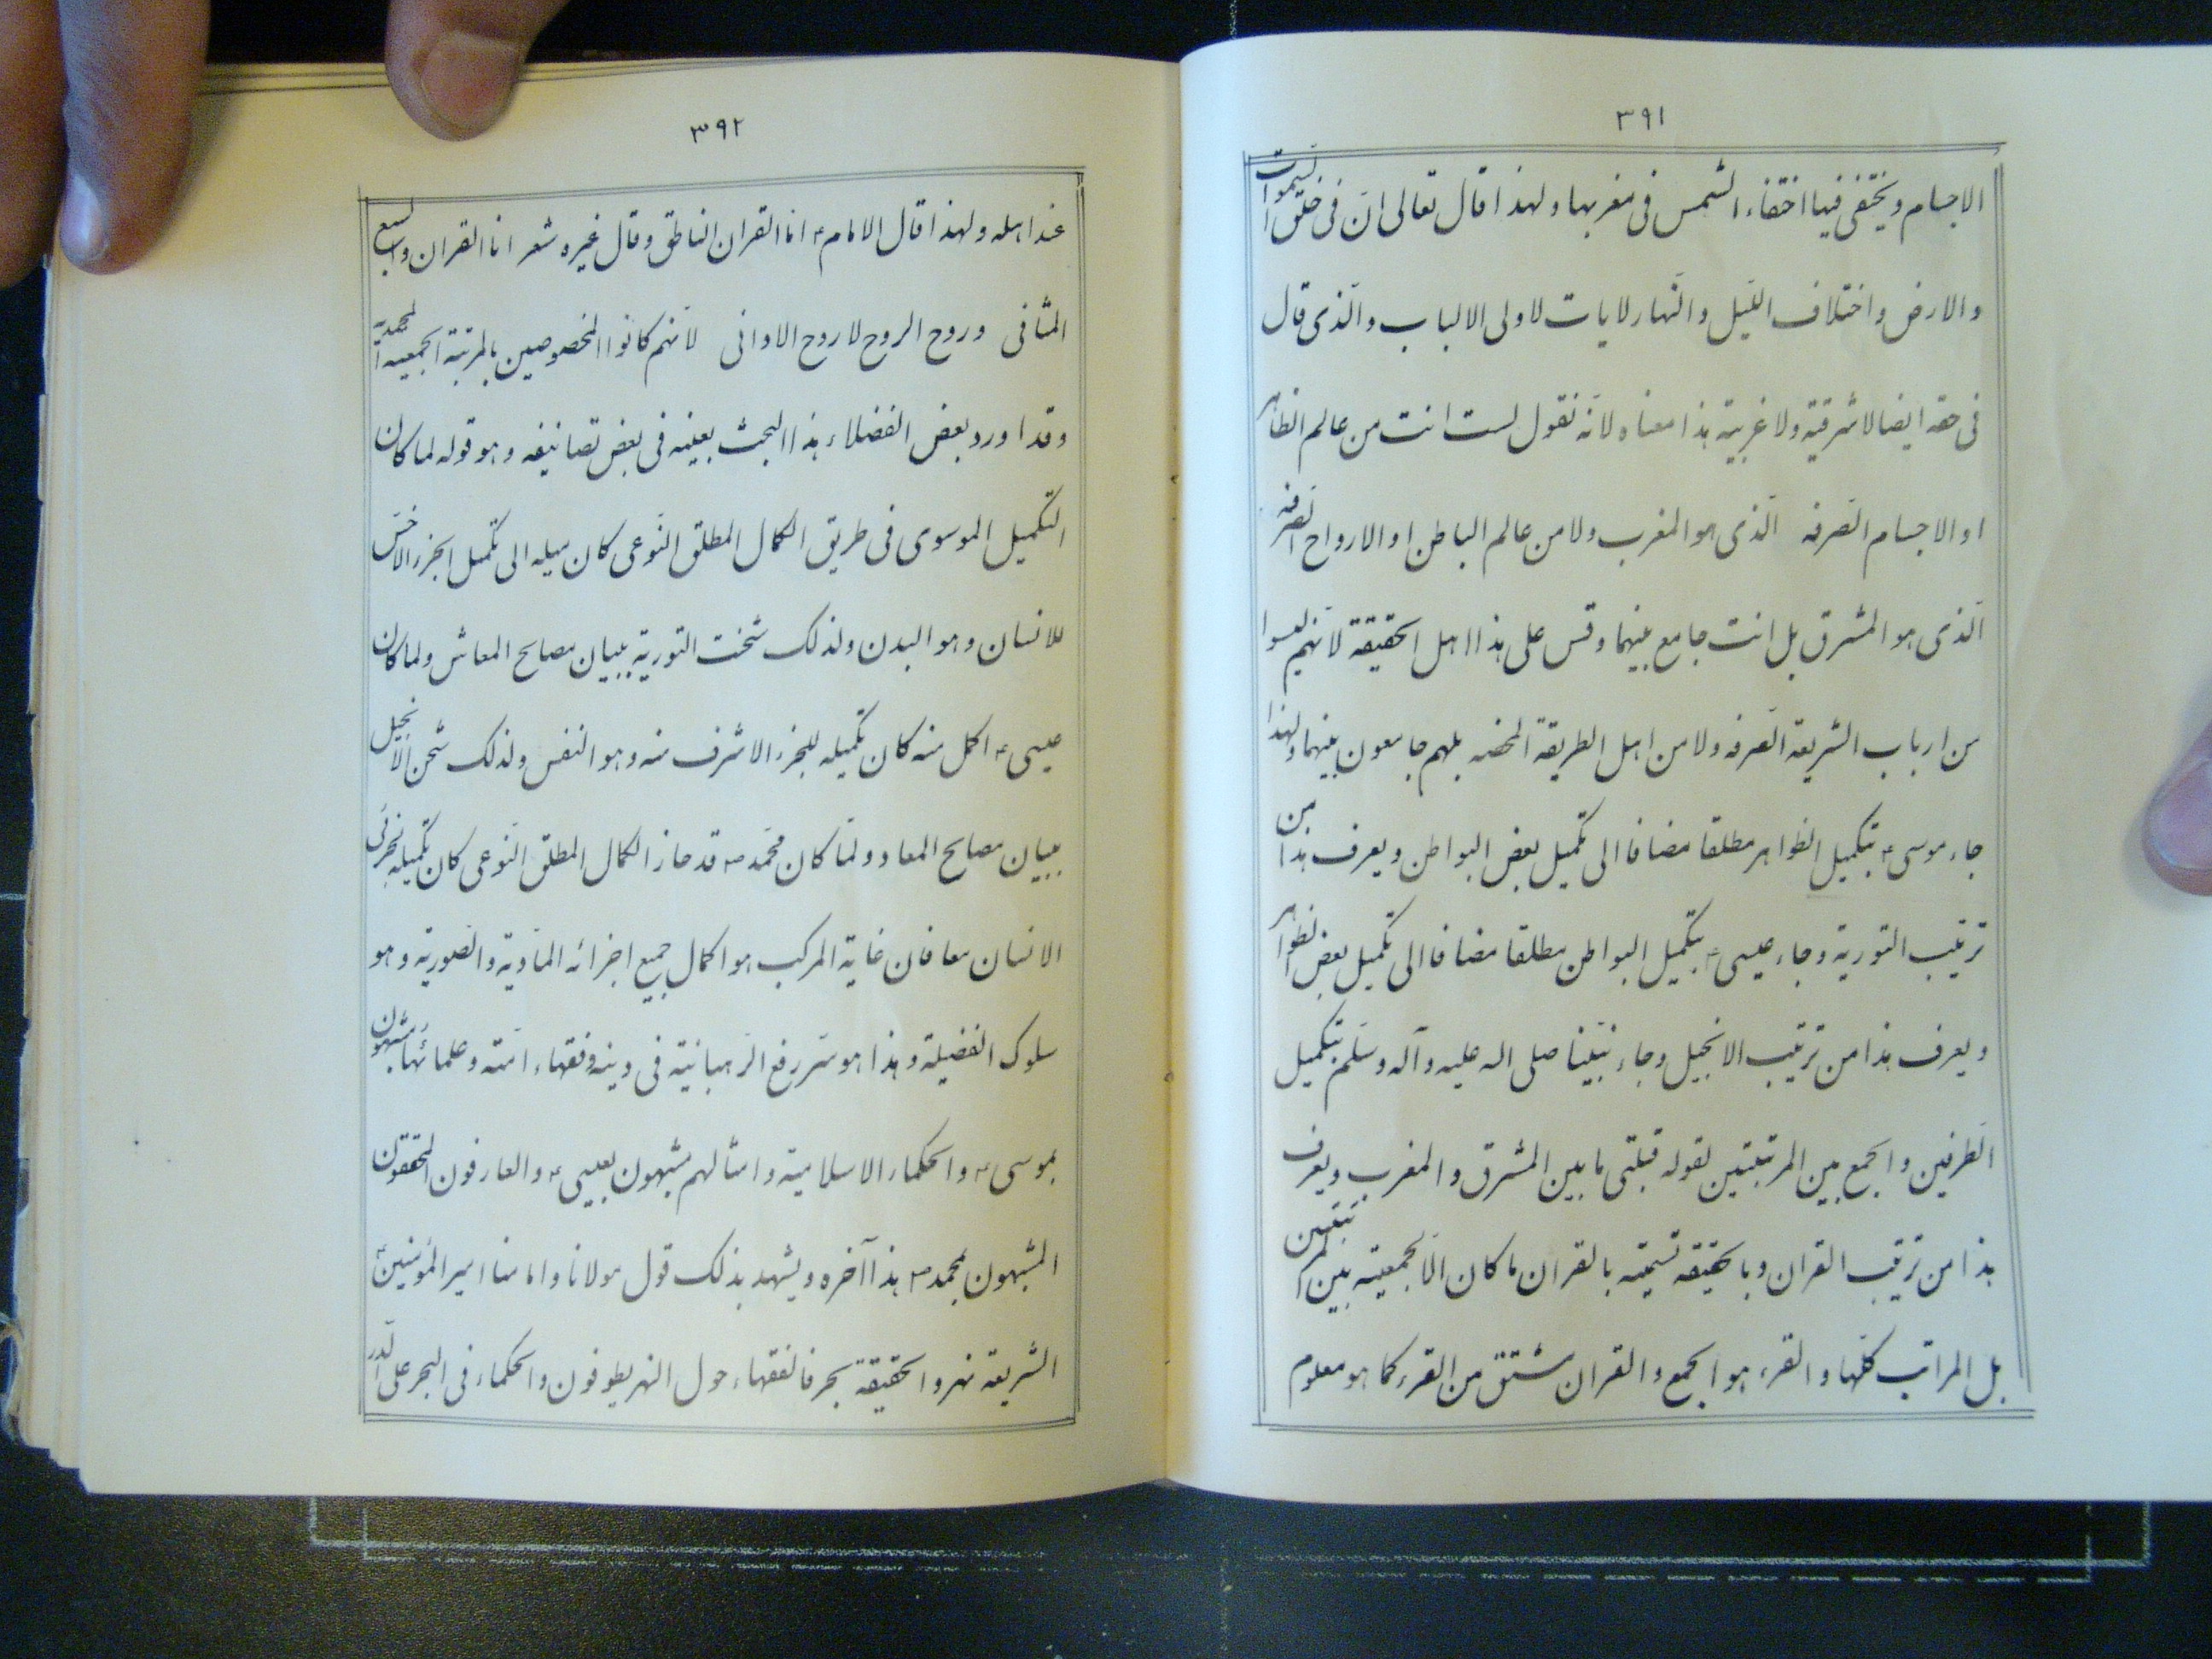 ٣٩١
الاجسام ويختفى فيها اختفاء الشمس فى مغربها ولهذا قال تعالى انّ فى خلق السّموات
والارض واختلاف اللّيل والنّهار لايات لاولى الالباب والّذى قال
فى حقه ايضا لا شرقية ولا غربية هذا معناه لانّه نقول لست انت من عالم الظاهر
او الاجسام الصّرفه الّذى هو المغرب ولا من عالم الباطن او الارواح الصّرفه
الّذى هو المشرق بل انت جامع بينهما وقس على هذا اهل الحقيقة لانّهم ليسوا
من ارباب الشريعة الصّرفه ولا من اهل الطريقة المحضه بلهم جامعون بينهما ولهذا
جاء موسى ع بتكميل الظواهر مطلقا مضافا الى تكميل بعض البواطن ويعرف هذا من
ترتيب التورية وجاء عيسى ع بتكميل البواطن مطلقا مضافا الى تكميل بعض الظواهر
ويعرف هذا من ترتيب الانجيل وجاء نبيّنا صلى اله عليه وآله وسلّم بتكميل
الطّرفين والجمع بين المرتبتين لقوله قبلتى ما بين المشرق والمغرب ويعرف
هذا من ترتيب القران وبالحقيقه تسميته بالقران ما كان الّا لجمعيته بين المرتبتين
بل المراتب كلّها والقرء هو الجمع والقران مشتق من القرء كما هو معلوم
٣٩٢
عند اهله ولهذا قال الامام ع انا القران الناطق وقال غيره شعر انا القران والسبع
المثانى وروح الروح لا روح الاوانى لانّهم كانوا المخصوصين بالمرتبة الجمعيه المحمديّه
وقد اورد بعض الفضلاء هذا البحث بعينه فى بعض تصانيفه وهو قوله لما كان
التكميل الموسوى فى طريق الكمال المطلق النّوعى كان ميله الى تكميل الجزء الاخسّ
للانسان وهو البدن ولذلك شحنت التورية ببيان مصالح المعاش ولما كان
عيسى ع اكمل منه كان تكميله للجزء الاشرف منه وهو النفس ولذلك شحن الانجيل
ببيان مصالح المعاد ولمّا كان محمّد ص قد حاز الكمال المطلق النّوعى كان تكميله لجزئى
الانسان معا فان غاية المركب هو اكمال جميع اجزائه المادّية والصّورية وهو
سلوك الفضيلة وهذا هو سّر رفع الرّهبانيّة فى دينه وفقهاء امّته وعلمائها مشبهون
بموسى ع والحكماء الاسلامية وامثالهم مشبهون بعيسى ع والعارفون المحققون
المشبهون بمحمد ص هذا آخره ويشهد بذلك قول مولانا وامامنا امير المؤمنين ع
الشريعة نهر والحقيقة بحر فالفقهاء حول النهر يطوفون والحكماء فى البحر على الّدر